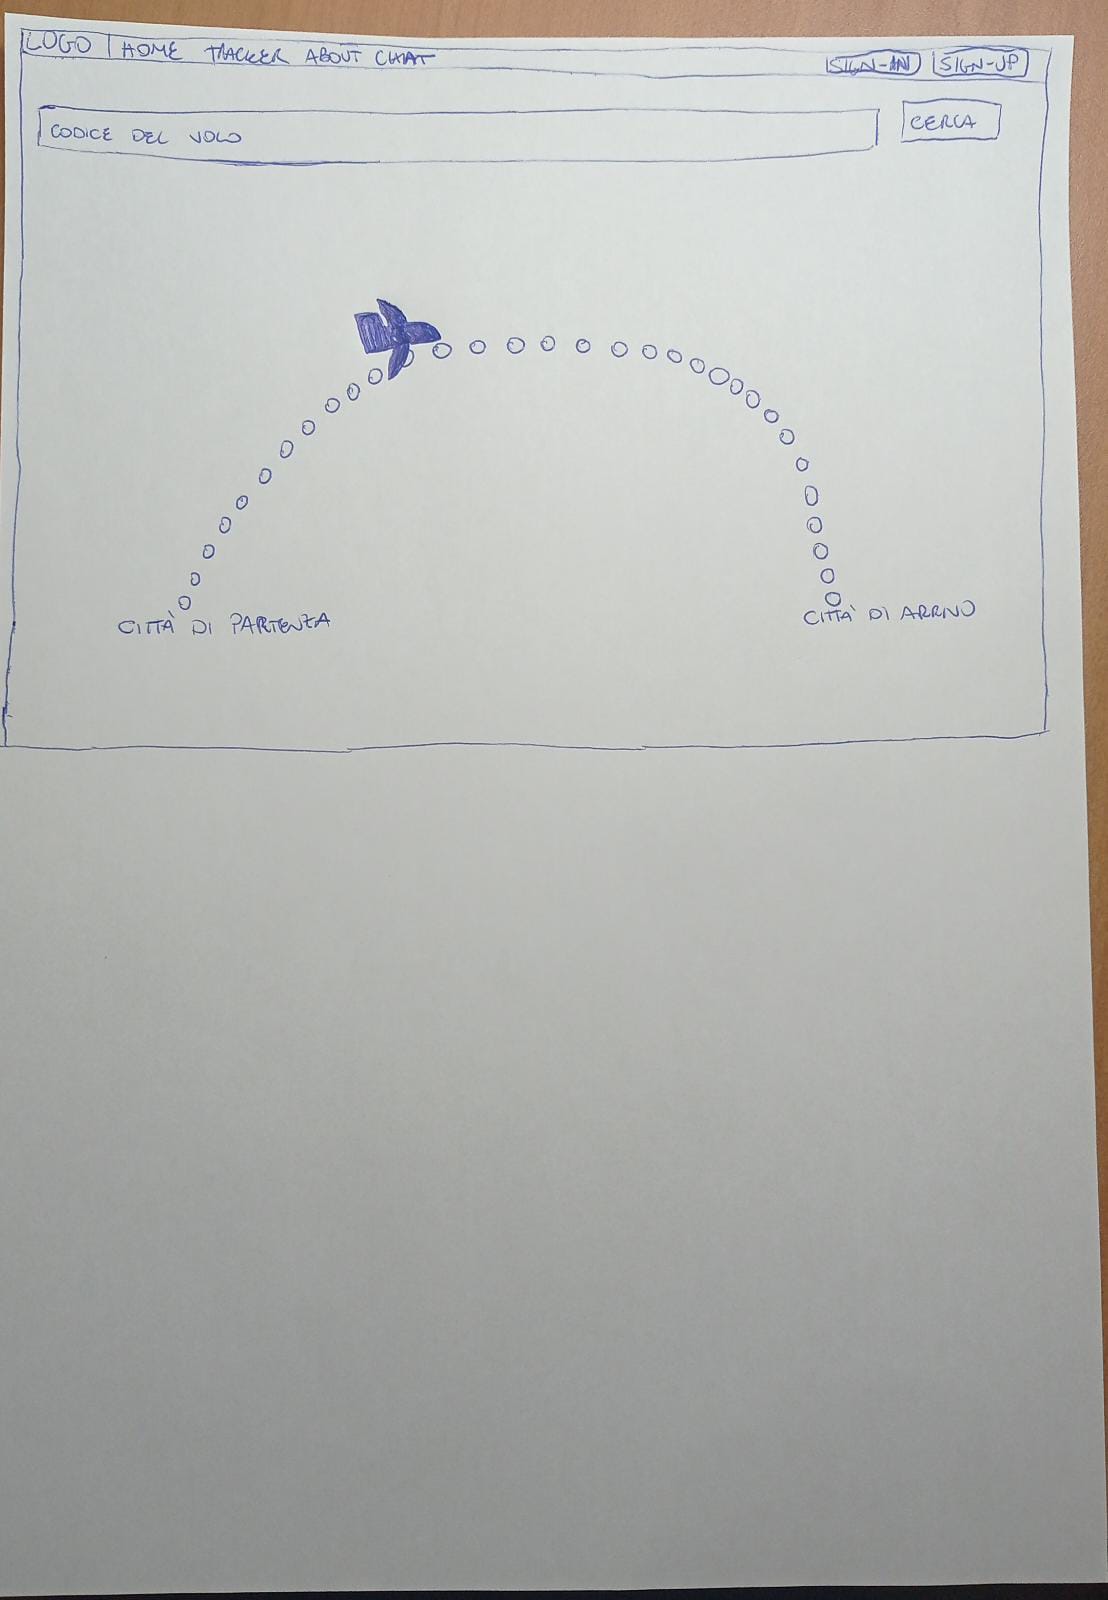 LOGO HOME TRACKER ABOUT CHAT SIGN-IN SIGN-UP
CODICE DEL VOLO CERCA
CITTÀ DI PARTENZA CITTÀ DI ARRIVO